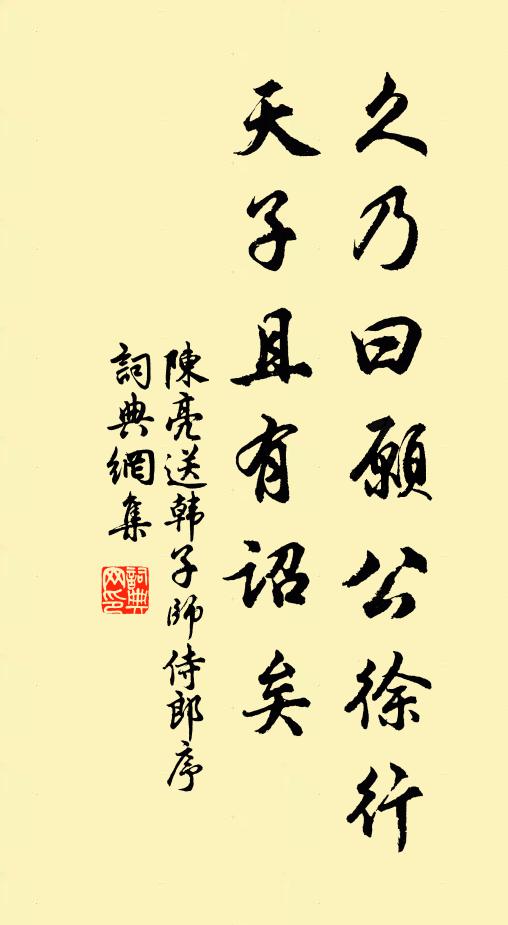 久乃曰願公徐行
天子且有詔矣
陳亮送韩子師侍郎序
詞典網集
詞典网印